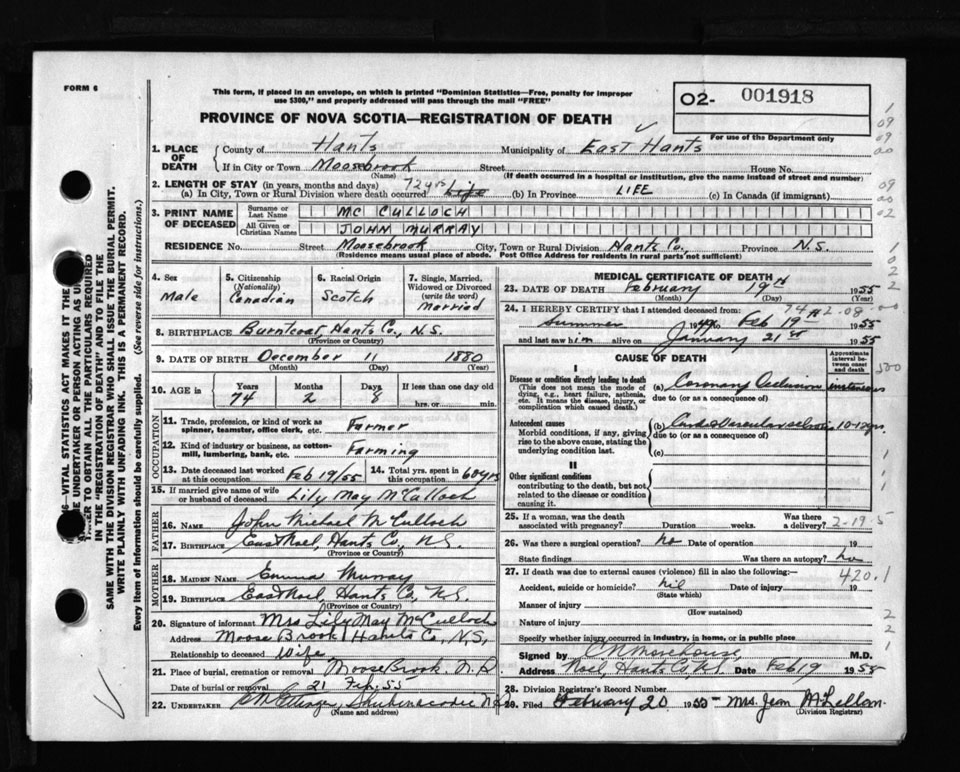 FORM 6
This form, if placed in an envelope, on which is printed "Dominion Statistics—Free, penalty for improper
use $300," and properly addressed will pass through the mail "FREE"
02- 001918
For use of the Department only
PROVINCE OF NOVA SCOTIA—REGISTRATION OF DEATH
1. PLACE OF DEATH
County of Hants Municipality of East Hants
If in City or Town Moosebrook Street House No.
(Name) (If death occurred in a hospital or institution, give the name instead of street and number)
2. LENGTH OF STAY (in years, months and days)
(a) In City, Town or Rural Division where death occurred 72 yrs Life (b) In Province LIFE (c) In Canada (if immigrant)
3. PRINT NAME OF DECEASED
Surname or Last Name MC CULLOCH
All Given or Christian Names JOHN MURRAY
RESIDENCE No. Street Moosebrook City, Town or Rural Division Hants Co., Province N.S.
(Residence means usual place of abode. Post Office Address for residents in rural parts not sufficient)
4. Sex
Male
5. Citizenship (Nationality)
Canadian
6. Racial Origin
Scotch
7. Single, Married, Widowed or Divorced (write the word)
Married
8. BIRTHPLACE Burntcoat, Hants Co., N.S.
(Province or Country)
9. DATE OF BIRTH December 11 1880
(Month) (Day) (Year)
10. AGE in Years Months Days If less than one day old
74 2 8 hrs. or min.
OCCUPATION
11. Trade, profession, or kind of work as spinner, teamster, office clerk, etc. Farmer
12. Kind of industry or business, as cotton-mill, lumbering, bank, etc. Farming
13. Date deceased last worked at this occupation Feb 19/55
14. Total yrs. spent in this occupation 60 yrs
15. If married give name of wife or husband of deceased Lily May McCulloch
FATHER
16. NAME John Michael McCulloch
17. BIRTHPLACE East Noel, Hants Co, N.S.
(Province or Country)
MOTHER
18. MAIDEN NAME Emma Murray
19. BIRTHPLACE East Noel, Hants Co, N.S.
(Province or Country)
20. Signature of informant Mrs Lily May McCulloch
Address Moose Brook Hants Co, N,S,
Relationship to deceased Wife
21. Place of burial, cremation or removal Moose Brook N.S
Date of burial or removal 21 Feb. 55
22. UNDERTAKER Shubenacadie N.S
(Name and address)
MEDICAL CERTIFICATE OF DEATH
23. DATE OF DEATH February 19th 1955
(Month) (Day)
24. I HEREBY CERTIFY that I attended deceased from:
Summer 1949 to Feb 19 1955
and last saw him alive on January 21st 1955
CAUSE OF DEATH
Approximate interval between onset and death
I
Disease or condition directly leading to death
(This does not mean the mode of dying, e.g., heart failure, asthenia, etc. It means the disease, injury, or complication which caused death.)
(a) Coronary Occlusion instantaneous
due to (or as a consequence of)
Antecedent causes
Morbid conditions, if any, giving rise to the above cause, stating the underlying condition last.
(b) 10-12 yrs
due to (or as a consequence of)
(c)
II
Other significant conditions
contributing to the death, but not related to the disease or condition causing it.
25. If a woman, was the death associated with pregnancy? Duration weeks. Was there a delivery? 2-19-5
26. Was there a surgical operation? no Date of operation 19
State findings Was there an autopsy? no
27. If death was due to external causes (violence) fill in also the following: 420.1
Accident, suicide or homicide? nil Date of injury 19
(State which)
Manner of injury
(How sustained)
Nature of injury
Specify whether injury occurred in industry, in home, or in public place
Signed by C N Morehouse, M.D.
Address Noel, Hants Co, N.S. Date Feb 19 1955
28. Division Registrar's Record Number
29. Filed February 20 1955 Mrs. Jean McLellan
(Division Registrar)
VITAL STATISTICS ACT MAKES IT THE
UNDERTAKER OR PERSON ACTING AS
TO OBTAIN ALL THE PARTICULARS REQUIRED
IN THE "REGISTRATION OF DEATH" AND TO FILE THE
SAME WITH THE DIVISION REGISTRAR WHO SHALL ISSUE THE BURIAL PERMIT.
WRITE PLAINLY WITH UNFADING INK. THIS IS A PERMANENT RECORD.
Every item of information should be carefully supplied. (See reverse side for instructions.)